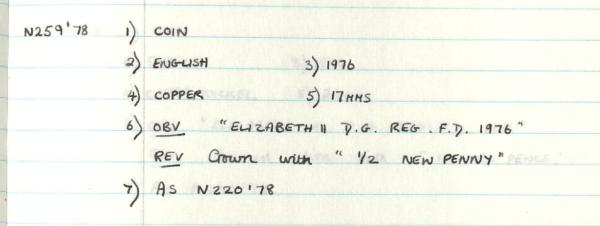 N259'78 1) COIN
2) ENGLISH 3) 1976
4) COPPER 5) 17MMS
6) OBV "ELIZABETH II D.G. REG. F.D. 1976"
REV Crown with "1/2 NEW PENNY"
7) AS N220'78